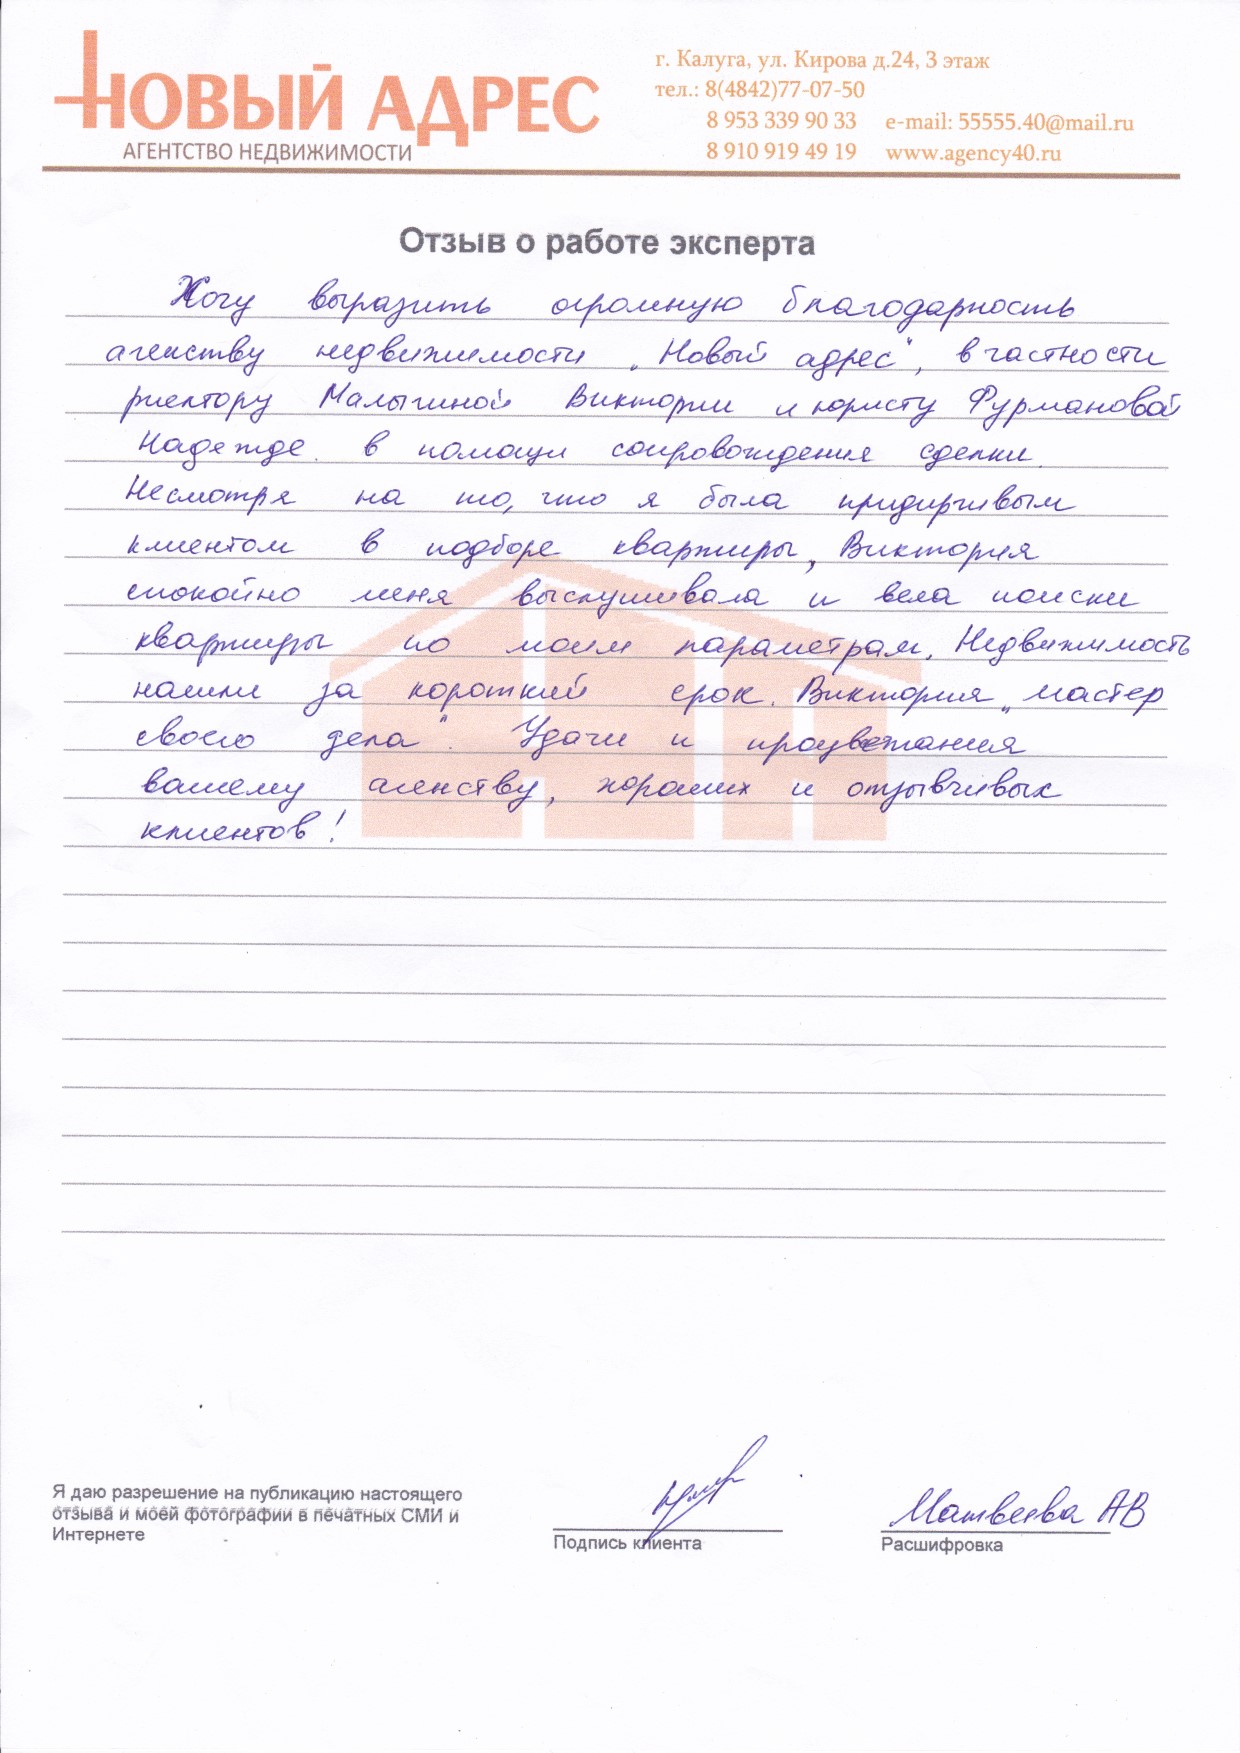 НОВЫЙ АДРЕС
АГЕНТСТВО НЕДВИЖИМОСТИ
г. Калуга, ул. Кирова д.24, 3 этаж
тел.: 8(4842)77-07-50
8 953 339 90 33 e-mail: 55555.40@mail.ru
8 910 919 49 19 www.agency40.ru
Отзыв о работе эксперта
Хочу выразить огромную благодарность
агенству недвижимости „Новый адрес", в частности
риелтору Малыгиной Виктории и юристу Фурмановой
Надежде в помощи сопровождения сделки.
Несмотря на то, что я была придирчивым
клиентом в подборе квартиры, Виктория
спокойно меня выслушивала и вела поиски
квартиры по моим параметрам. Недвижимость
нашли за короткий срок. Виктория „мастер
своего дела". Удачи и процветания
вашему агенству, хороших и отзывчивых
клиентов!
Я даю разрешение на публикацию настоящего
отзыва и моей фотографии в печатных СМИ и
Интернете
Подпись клиента
Матвеева АВ
Расшифровка